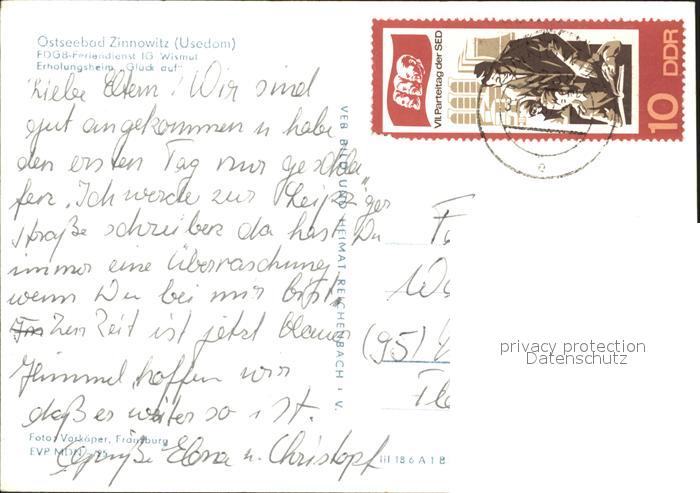 Ostseebad Zinnowitz (Usedom)
FDGB-Feriendienst IG Wismut
Erholungsheim „Glück auf“
Liebe Eltern! Wir sind
gut angekommen u habe
den ersten Tag nur geschla
fen. Ich werde zur „Leipziger
Straße schreiben da hast Du
immer eine Überraschung
wenn Du bei mir bist.
Zur Zeit ist jetzt blauer
Himmel, hoffen wir
daß es weiter so ist.
Grüße Elona u. Christopf
Foto: Vorköper, Franzburg
EVP MDN
III 18 6 A 1 B
VEB BILD UND HEIMAT REICHENBACH i. V.
VII. Parteitag der SED
10 DDR
(95)
privacy protection
Datenschutz